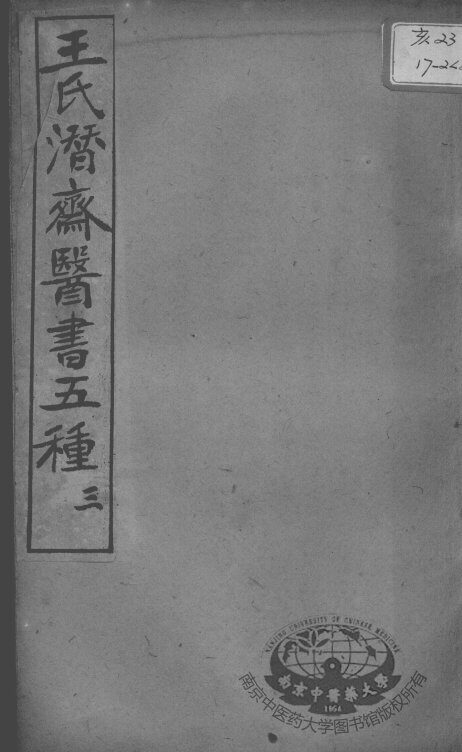 王氏潛齋醫書五種 三
亥23
NANJING UNIVERSITY OF CHINESE MEDICINE
南京中醫藥大學
1954
南京中医药大学图书馆版权所有